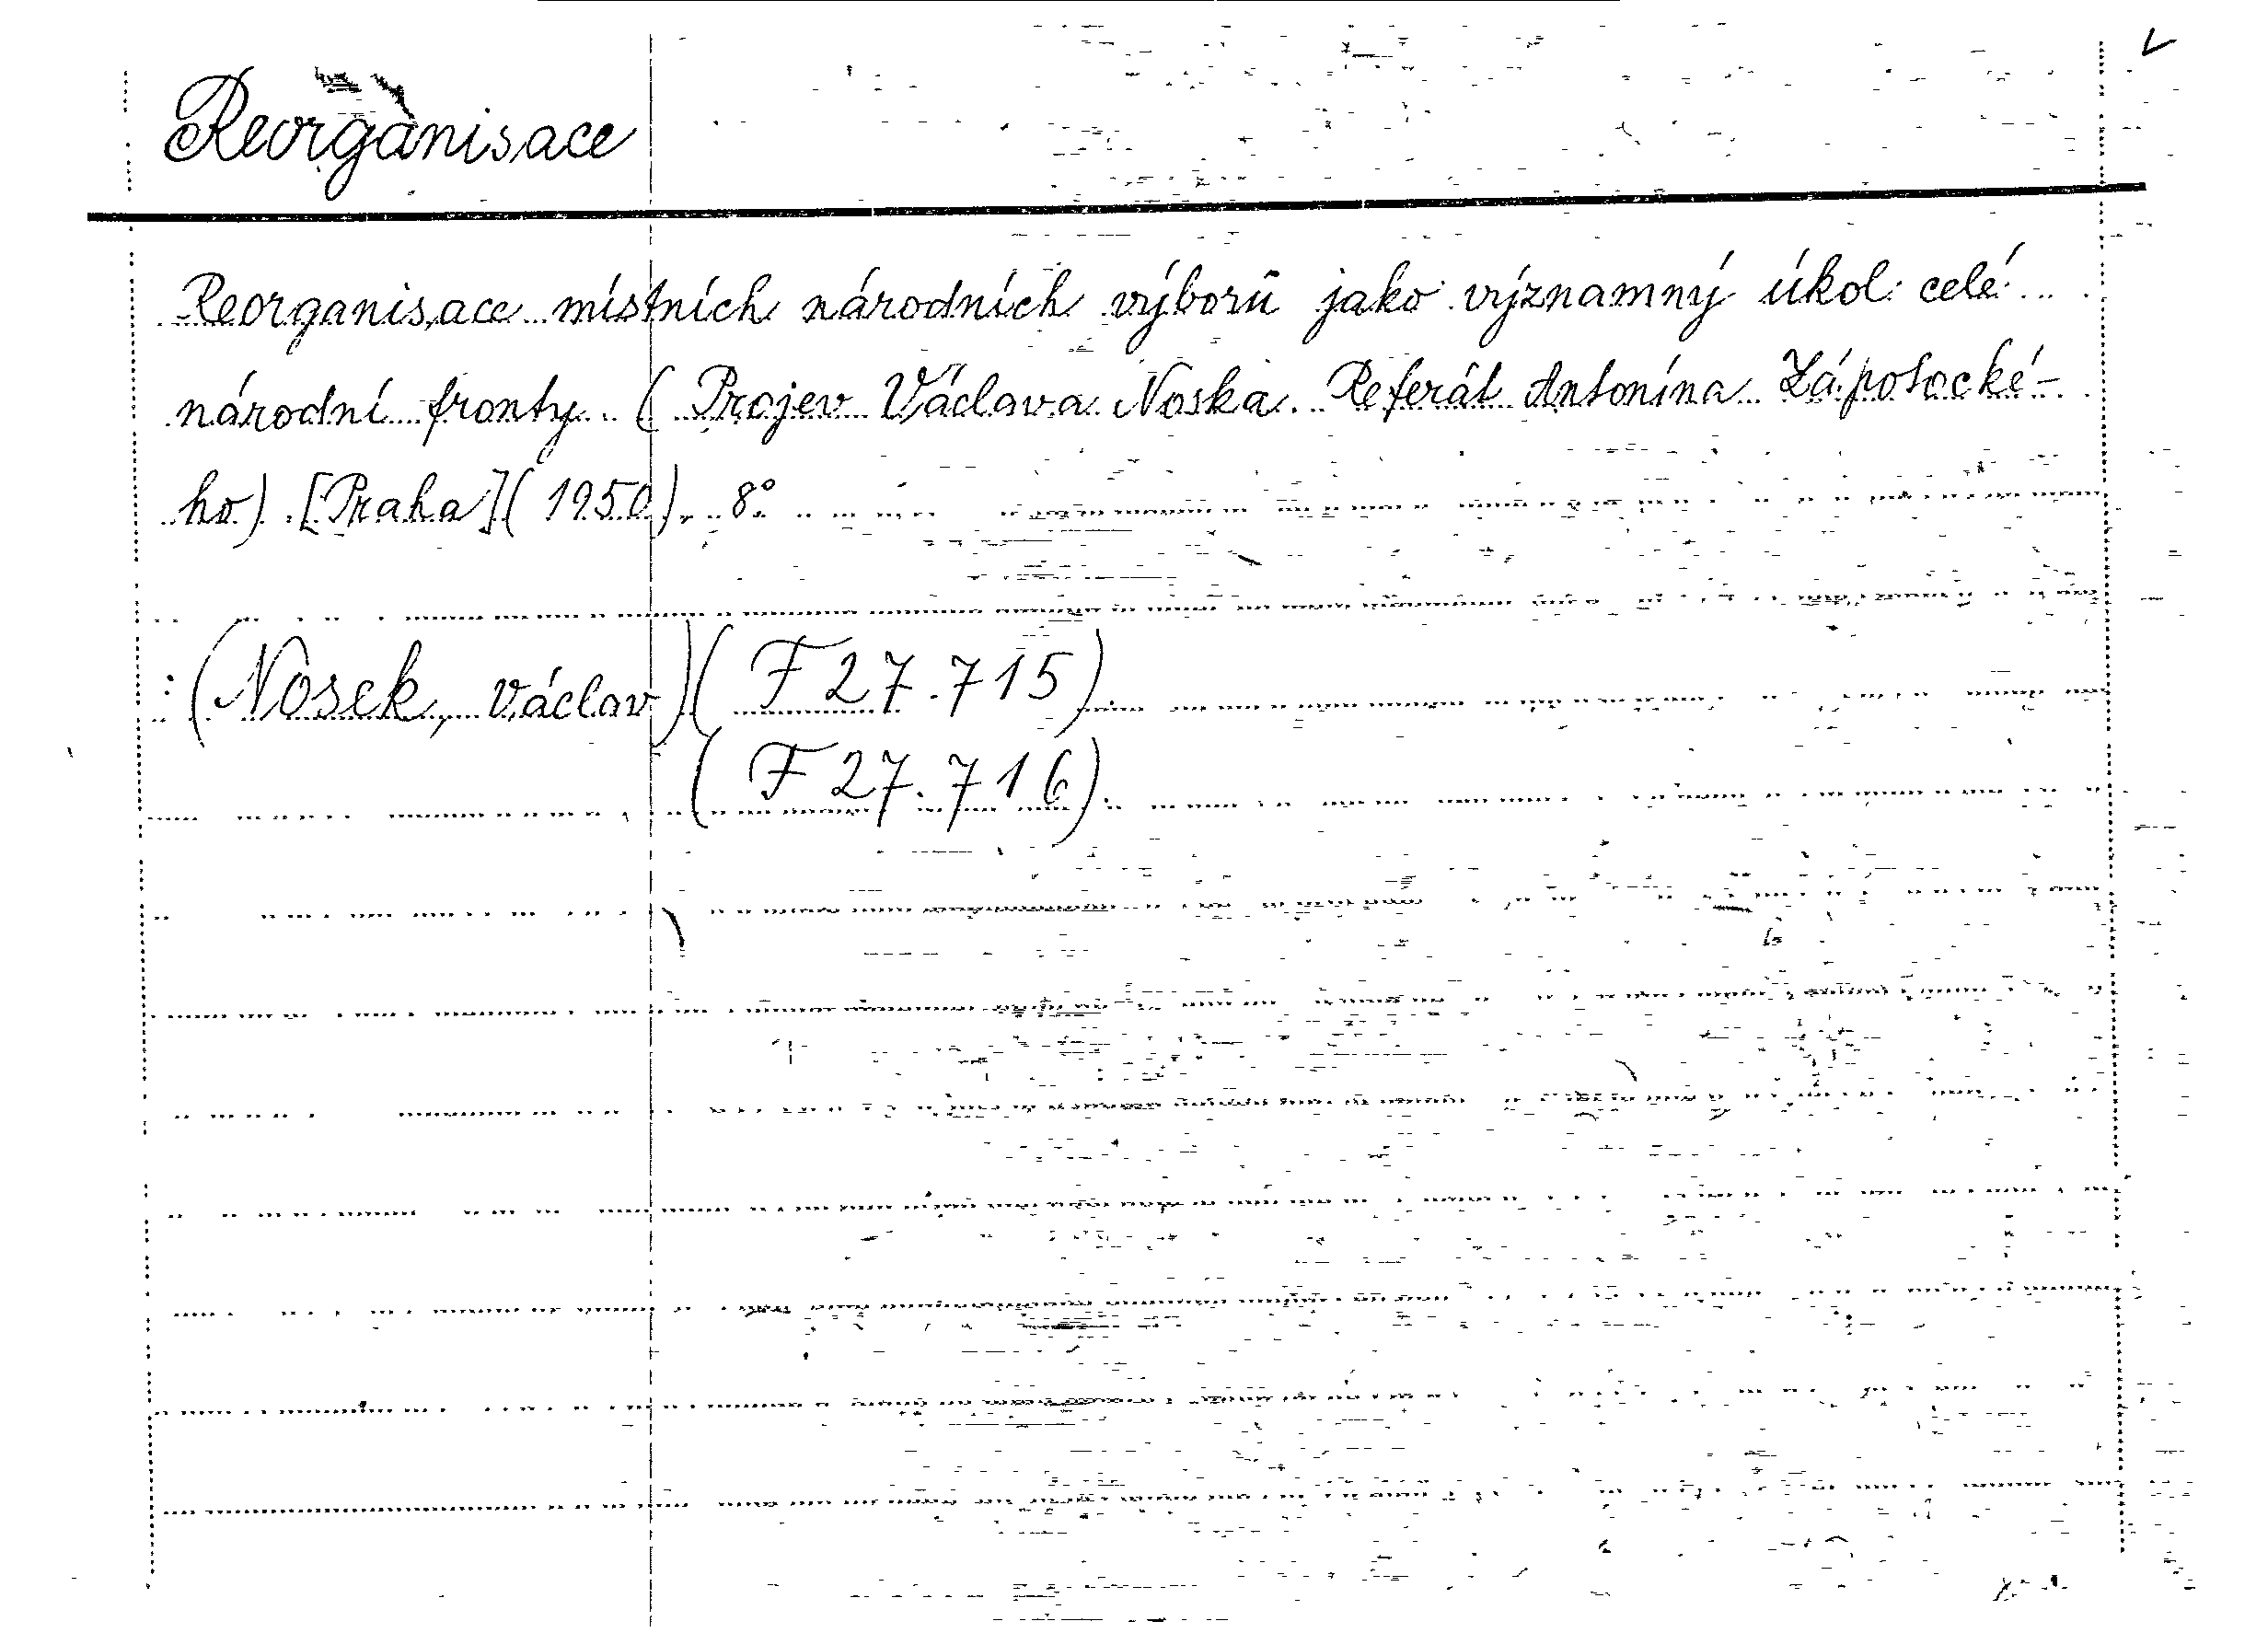 Reorganisace
Reorganisace místních národních výborů jako významný úkol celé
národní fronty. (Projev Václava Noska. Referát Antonína Zápotocké-
ho). [Praha] (1950). 8°
: (Nosek, Václav) (F 27.715)
(F 27.716)